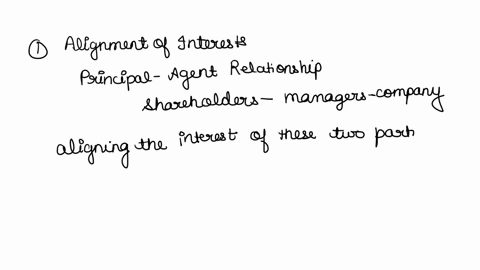 ① Alignment of Interests
Principal-Agent Relationship
Shareholders- managers-company
aligning the interest of these two part